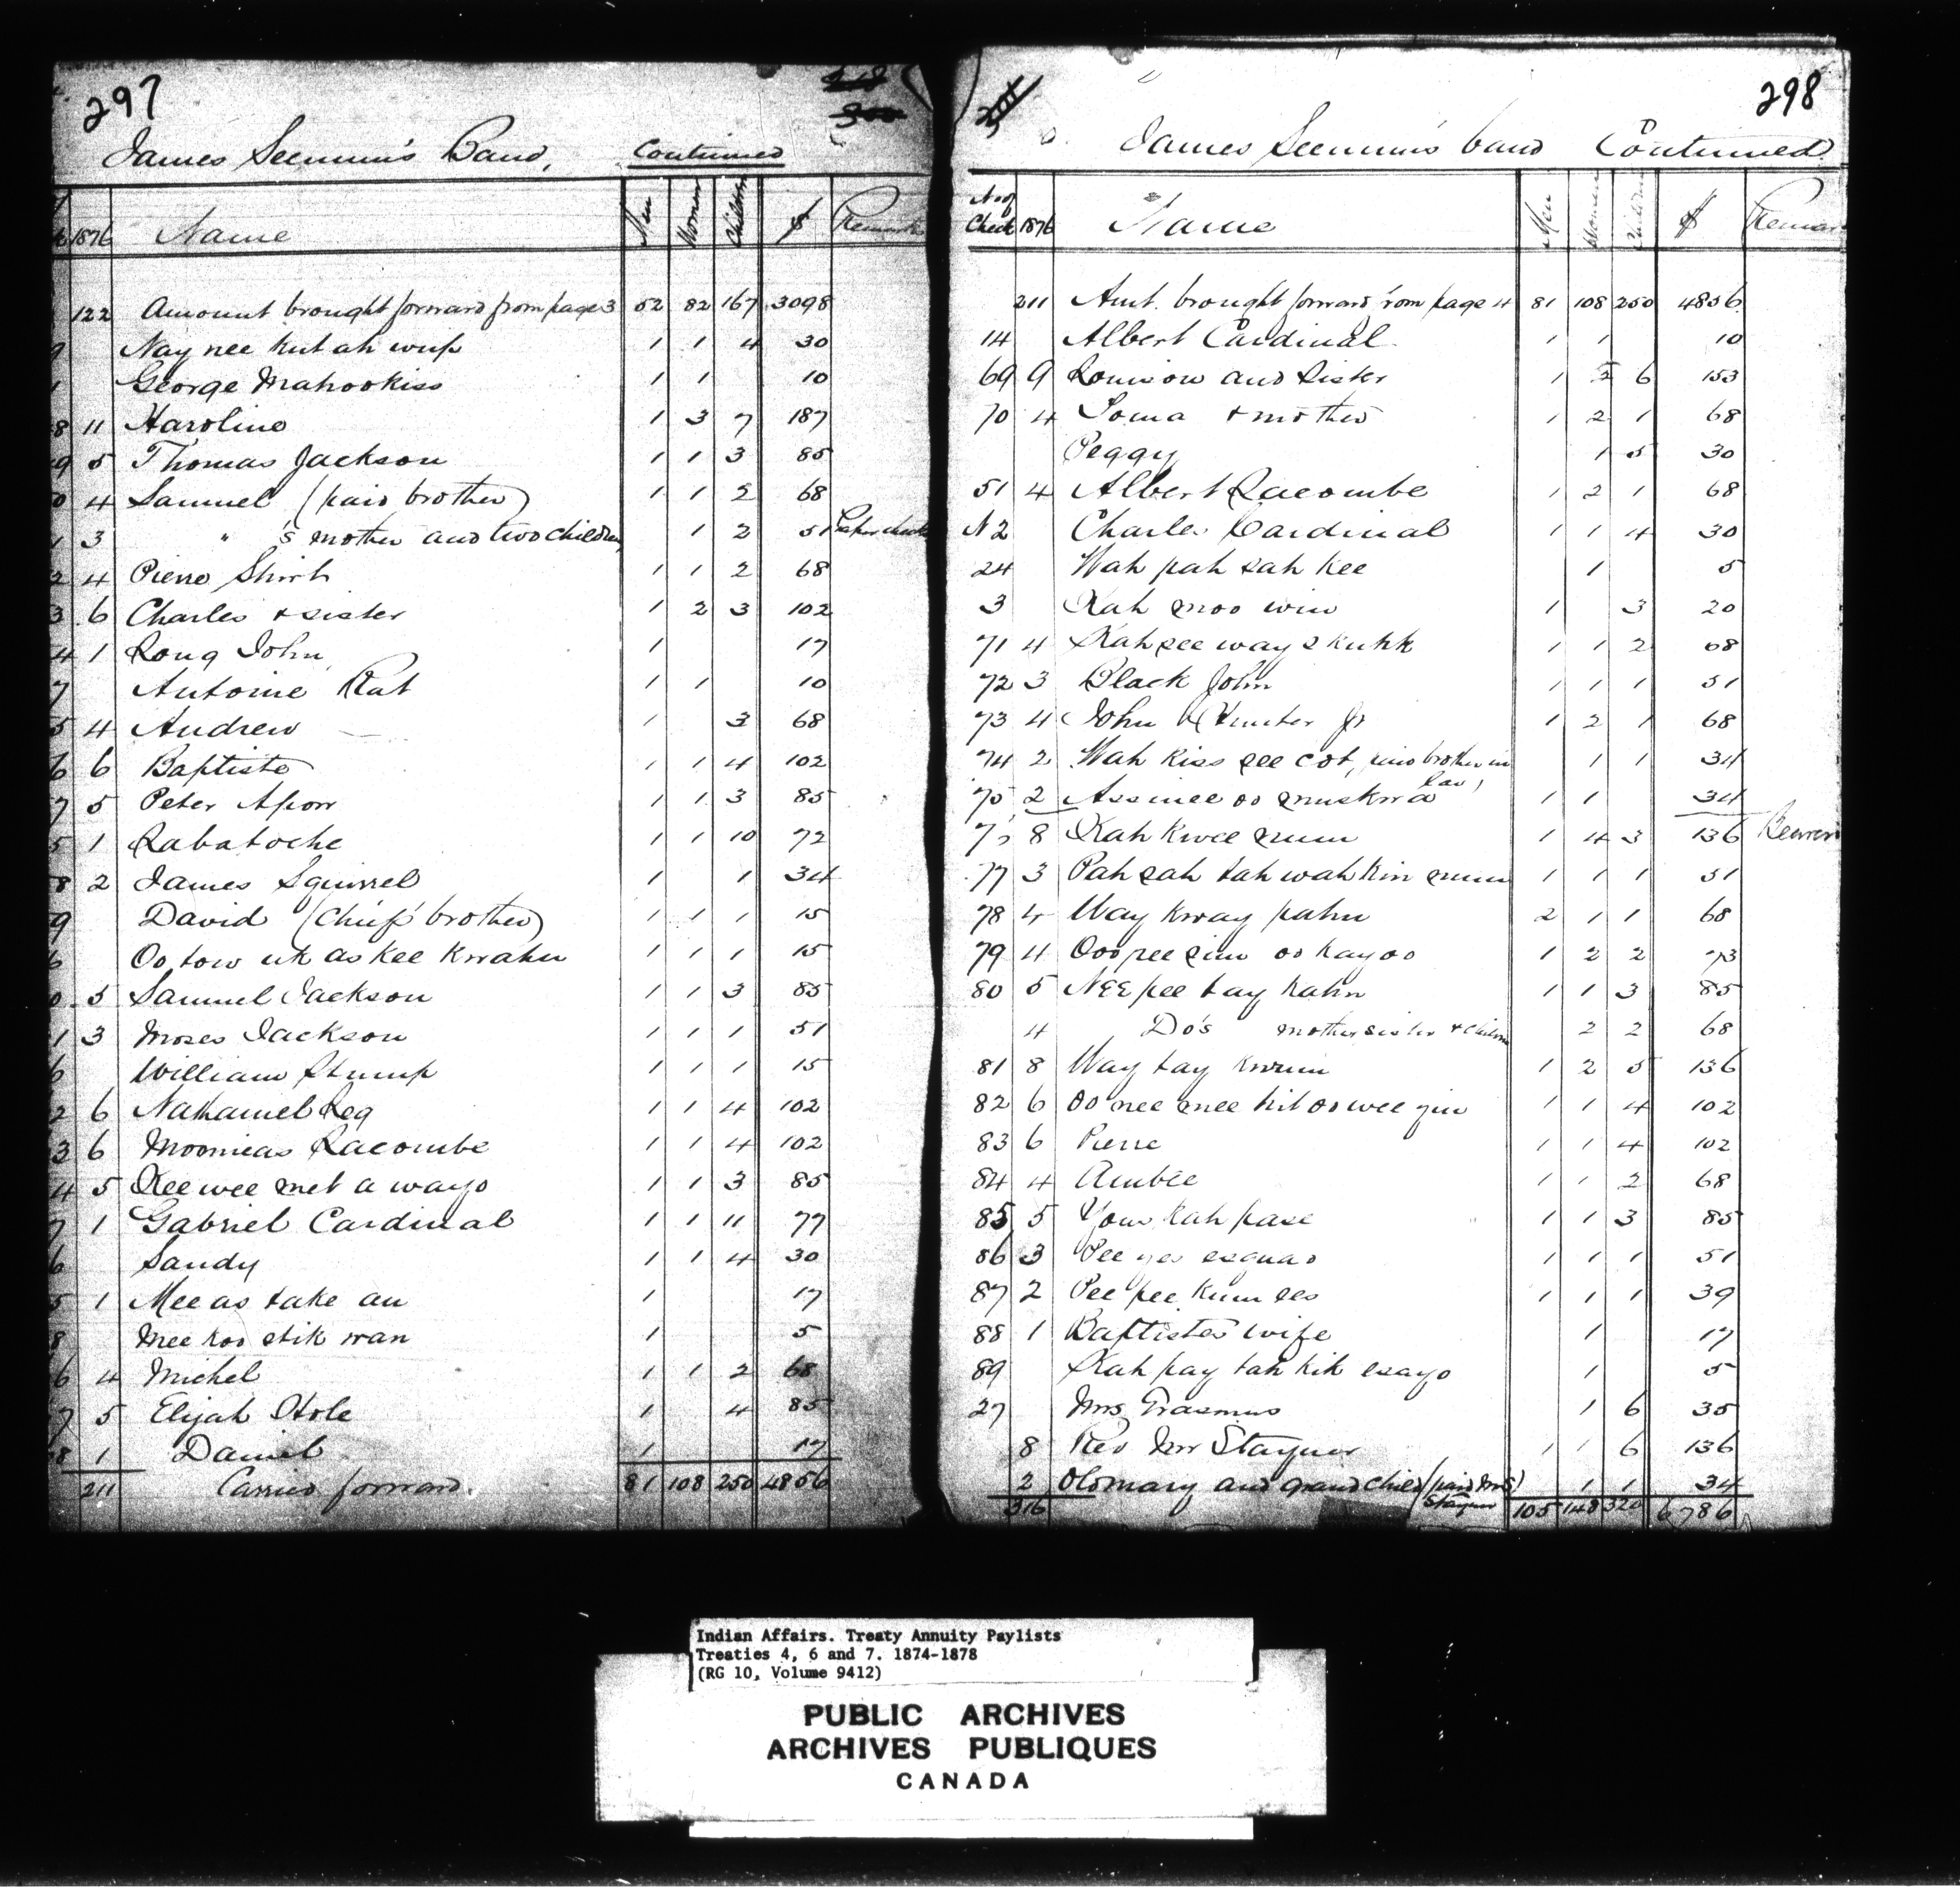 297
James Seenum's Band, Continued
1876 Name Men Women Children $ Remarks
122 Amount brought forward from page 3 52 82 167 3098
9 Nay nee kut ah wup 1 1 4 30
1 George Mahookiss 1 1 10
8 11 Haroline 1 3 7 187
9 5 Thomas Jackson 1 1 3 85
0 4 Samuel (paid brother) 1 1 2 68
1 3 " 's mother and two children 1 2 51
2 4 Pierre Shirt 1 1 2 68
3 6 Charles & sister 1 2 3 102
4 1 Long John 1 17
7 Antoine Rat 1 1 10
5 4 Andrew 1 3 68
6 6 Baptiste 1 1 4 102
7 5 Peter Apow 1 1 3 85
5 1 Labatoche 1 1 10 72
8 2 James Squirrel 1 1 34
9 David (Chief's brother) 1 1 1 15
6 Oo tow uk as kee kwahn 1 1 1 15
0 5 Samuel Jackson 1 1 3 85
1 3 Moses Jackson 1 1 1 51
6 William Stump 1 1 1 15
2 6 Nathaniel Leg 1 1 4 102
3 6 Moonieas Lacombe 1 1 4 102
4 5 Kee wee met a wayo 1 1 3 85
7 1 Gabriel Cardinal 1 1 11 77
6 Sandy 1 1 4 30
5 1 Mee as take an 1 17
8 Mee koo stik wan 1 5
6 4 Michel 1 1 2 68
7 5 Elijah Hole 1 4 85
8 1 Daniel 1 17
211 Carried forward. 81 108 250 4856
298
James Seenum's band Continued
No of Check 1876 Name Men Women Children $ Remarks
211 Amt. brought forward from page 4 81 108 250 4856
14 Albert Cardinal 1 1 10
69 9 Louison and Sister 1 2 6 153
70 4 Soma & mother 1 2 1 68
Peggy 1 5 30
51 4 Albert Lacombe 1 2 1 68
N2 Charles Cardinal 1 1 4 30
24 Wah pah sah kee 1 5
3 Kah moo win 1 3 20
71 4 Kah see way s kuhk 1 1 2 68
72 3 Black John 1 1 1 51
73 4 John Hunter Jr 1 2 1 68
74 2 Wah kiss see cot, paid brother in law, 1 1 34
75 2 Assinee oo muskwa 1 1 34
7 8 Kah kwee num 1 4 3 136
77 3 Pah sah tah wah kin num 1 1 1 51
78 4 Way kway pahn 2 1 1 68
79 4 Ooo pee sim oo kay oo 1 2 2 73
80 5 Nee pee tay kahn 1 1 3 85
4 Do's mother sister & children 2 2 68
81 8 Way tay kwun 1 2 5 136
82 6 Oo nee mee hit oo wee yin 1 1 4 102
83 6 Pierre 1 1 4 102
84 4 Ambee 1 1 2 68
85 5 Yow kah pase 1 1 3 85
86 3 Pee yes esquao 1 1 1 51
87 2 Pee pee kum ees 1 1 1 39
88 1 Baptiste's wife 1 17
89 Kah pay tah kik esayo 1 5
27 Mrs Erasmus 1 6 35
8 Rev Mr Stayner 1 1 6 136
2 Old mary and grand child (paid Mrs Stayner) 1 1 34
316 105 148 320 6786
Indian Affairs. Treaty Annuity Paylists
Treaties 4, 6 and 7. 1874-1878
(RG 10, Volume 9412)
PUBLIC ARCHIVES
ARCHIVES PUBLIQUES
CANADA